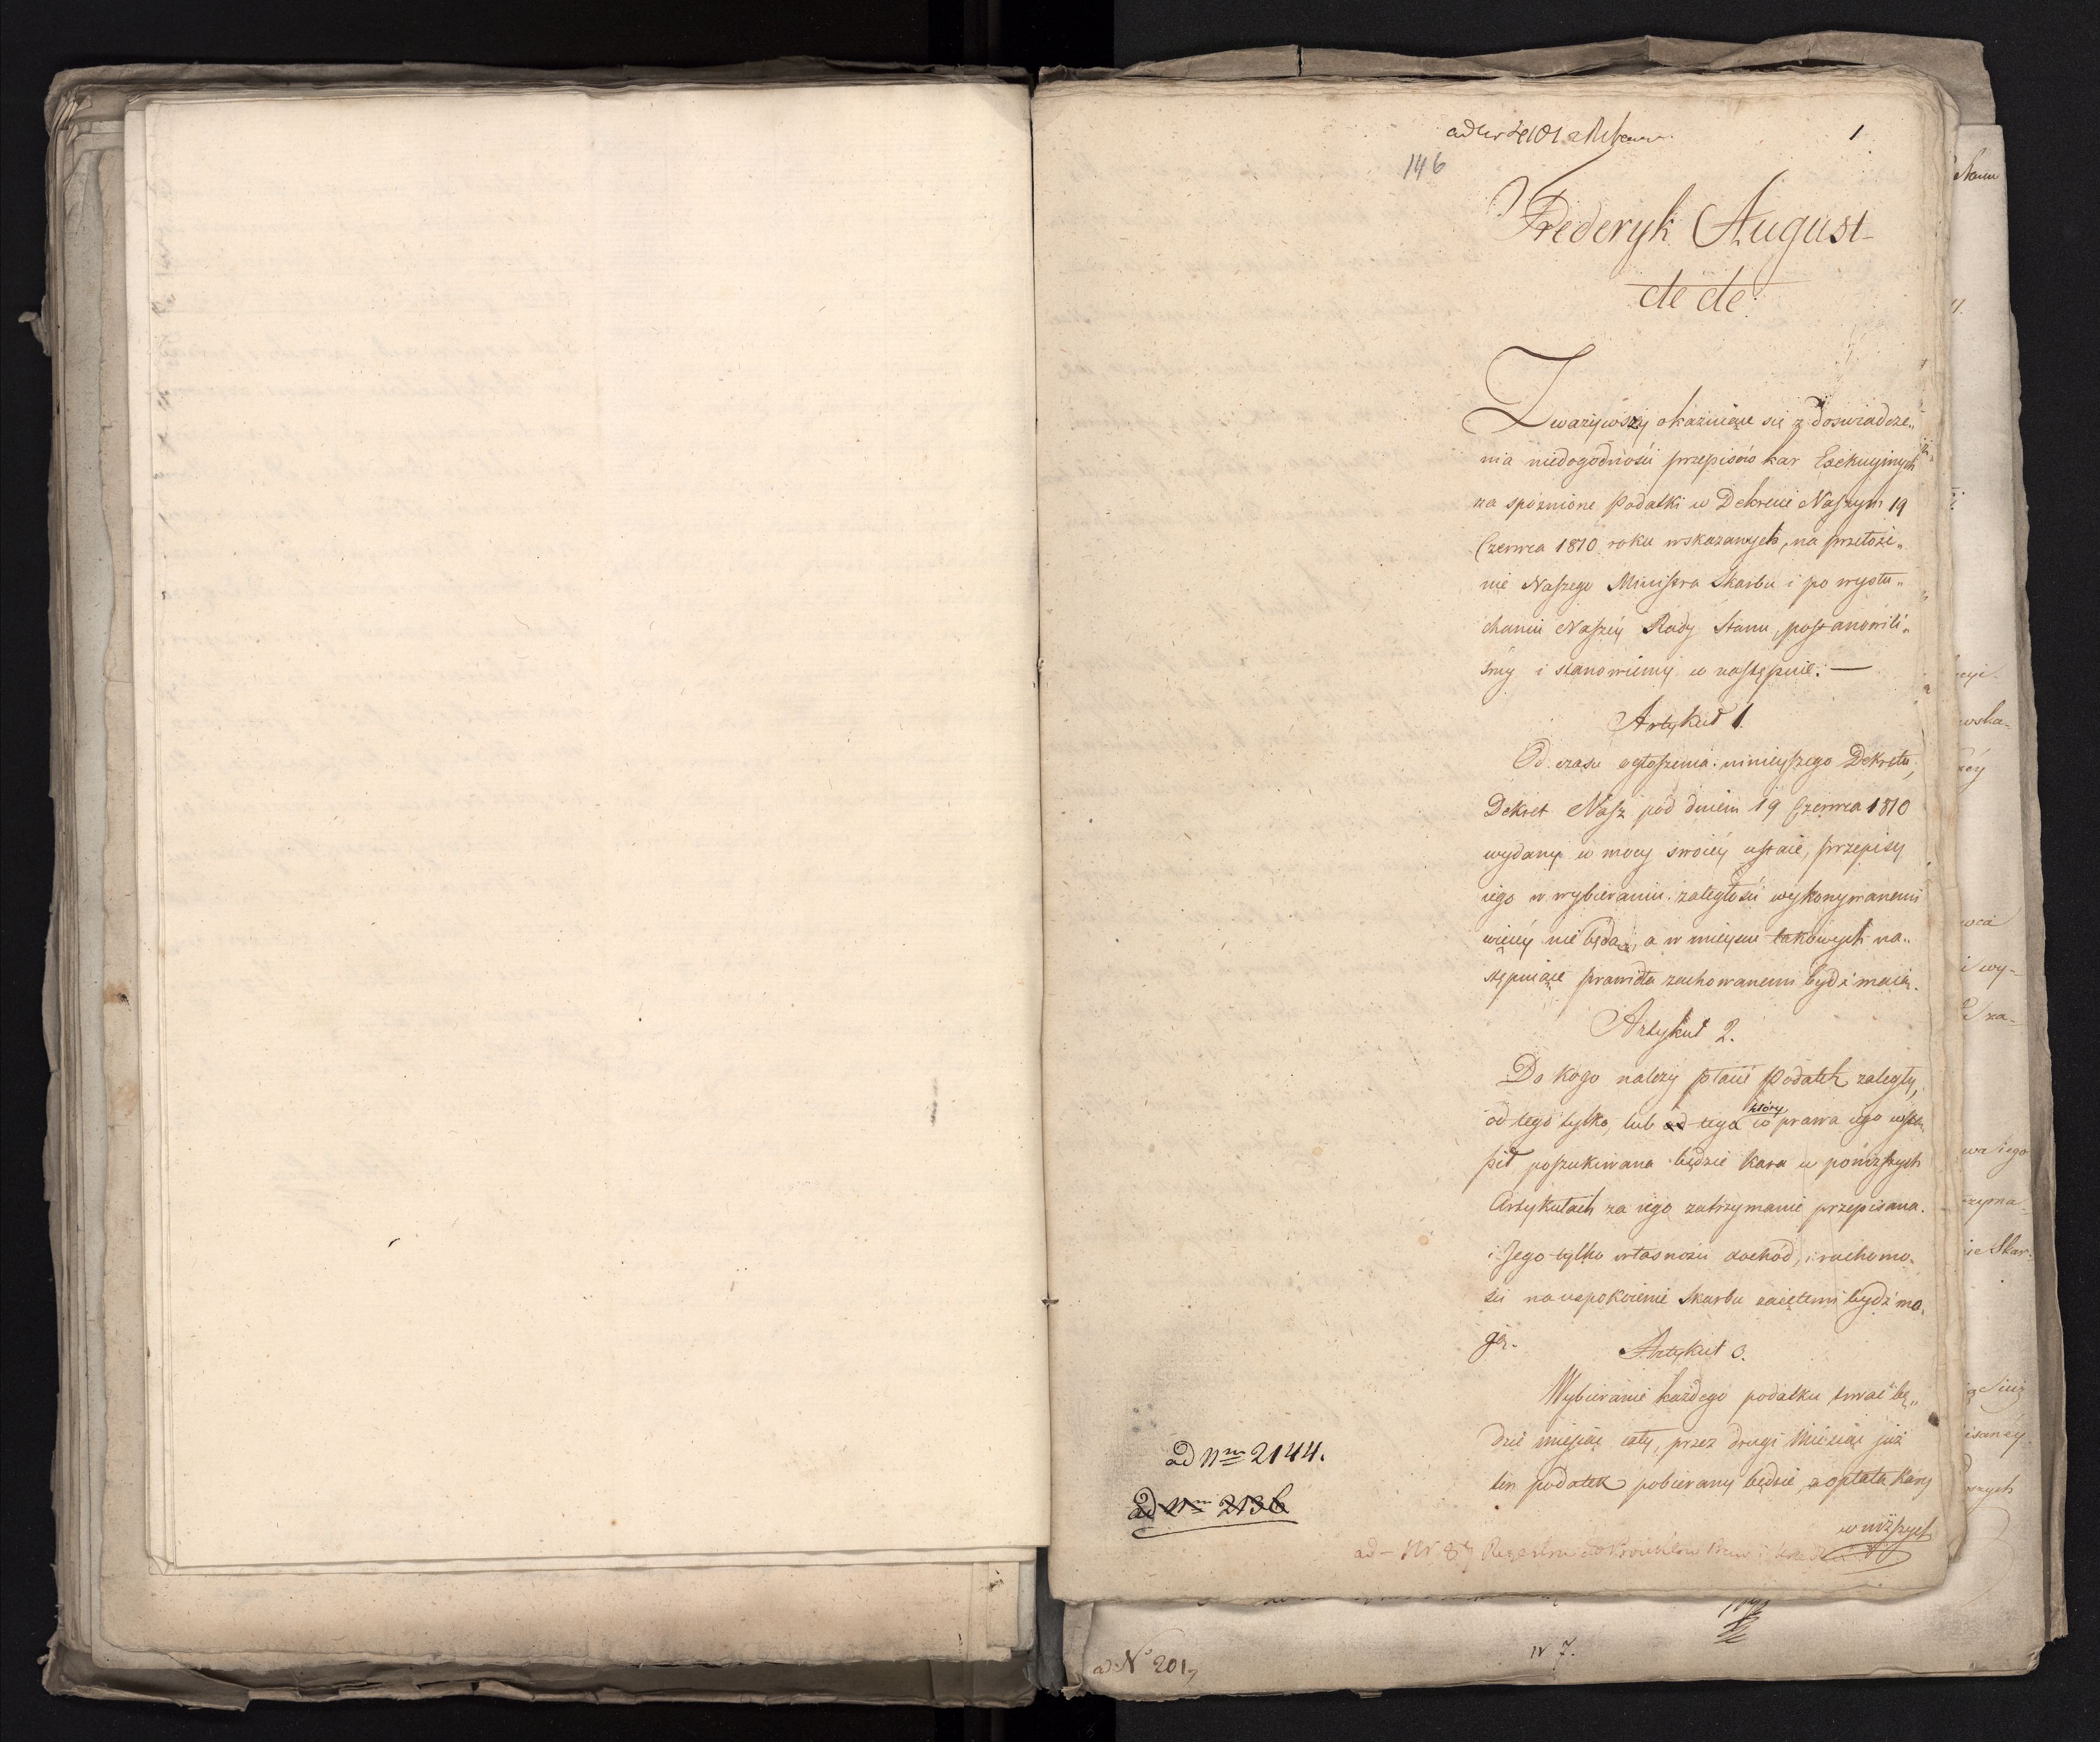 146
1
Frederyk August
de de
Zważywszy okazuiące się z doswiadcze„
nia niedogodności przepisów kar Exekucyinych
za spóznione Podatki w Dekrecie Naszym 19
Czerwca 1810 roku wskazanych, na przełoże„
nie Naszego Ministra Skarbu i po wysłu„
chaniu Naszéy Rady Stanu, postanowili„
śmy i stanowiemy co następuie. —
Artykuł 1.
Od czasu ogłoszenia ninieyszego Dekretu,
Dekret Nasz pod dniem 19 Czerwca 1810
wydany w mocy swoiéy ustaie, przepisy
iego w wybieraniu zaległości wykonywanemi
więcéy nie będą, a w mieyscu takowych na„
stępuiące prawidła zachowanemi bydź maią.
Artykuł 2.
Do kogo należy płacić Podatek zaległy,
od tego tylko, lub od tego który w prawa iego wstą„
pił, poszukiwana będzie kara w poniższych
Artykułach za iego zatrzymanie przepisana.
i Jego tylko własności dochód, i ruchomo„
ści na uspokoienie Skarbu zaiętemi bydź mo„
gą.
Artykuł 3.
Wybieranie każdego podatku trwać bę„
dzie miesiąc cały, przez drugi Miesiąc już
ten podatek pobierany będzie, a opłata kary
w niższych
ad Nrm 2144.
ad Nrm 2136
ad — Nr 87
ad N° 201
N 7.